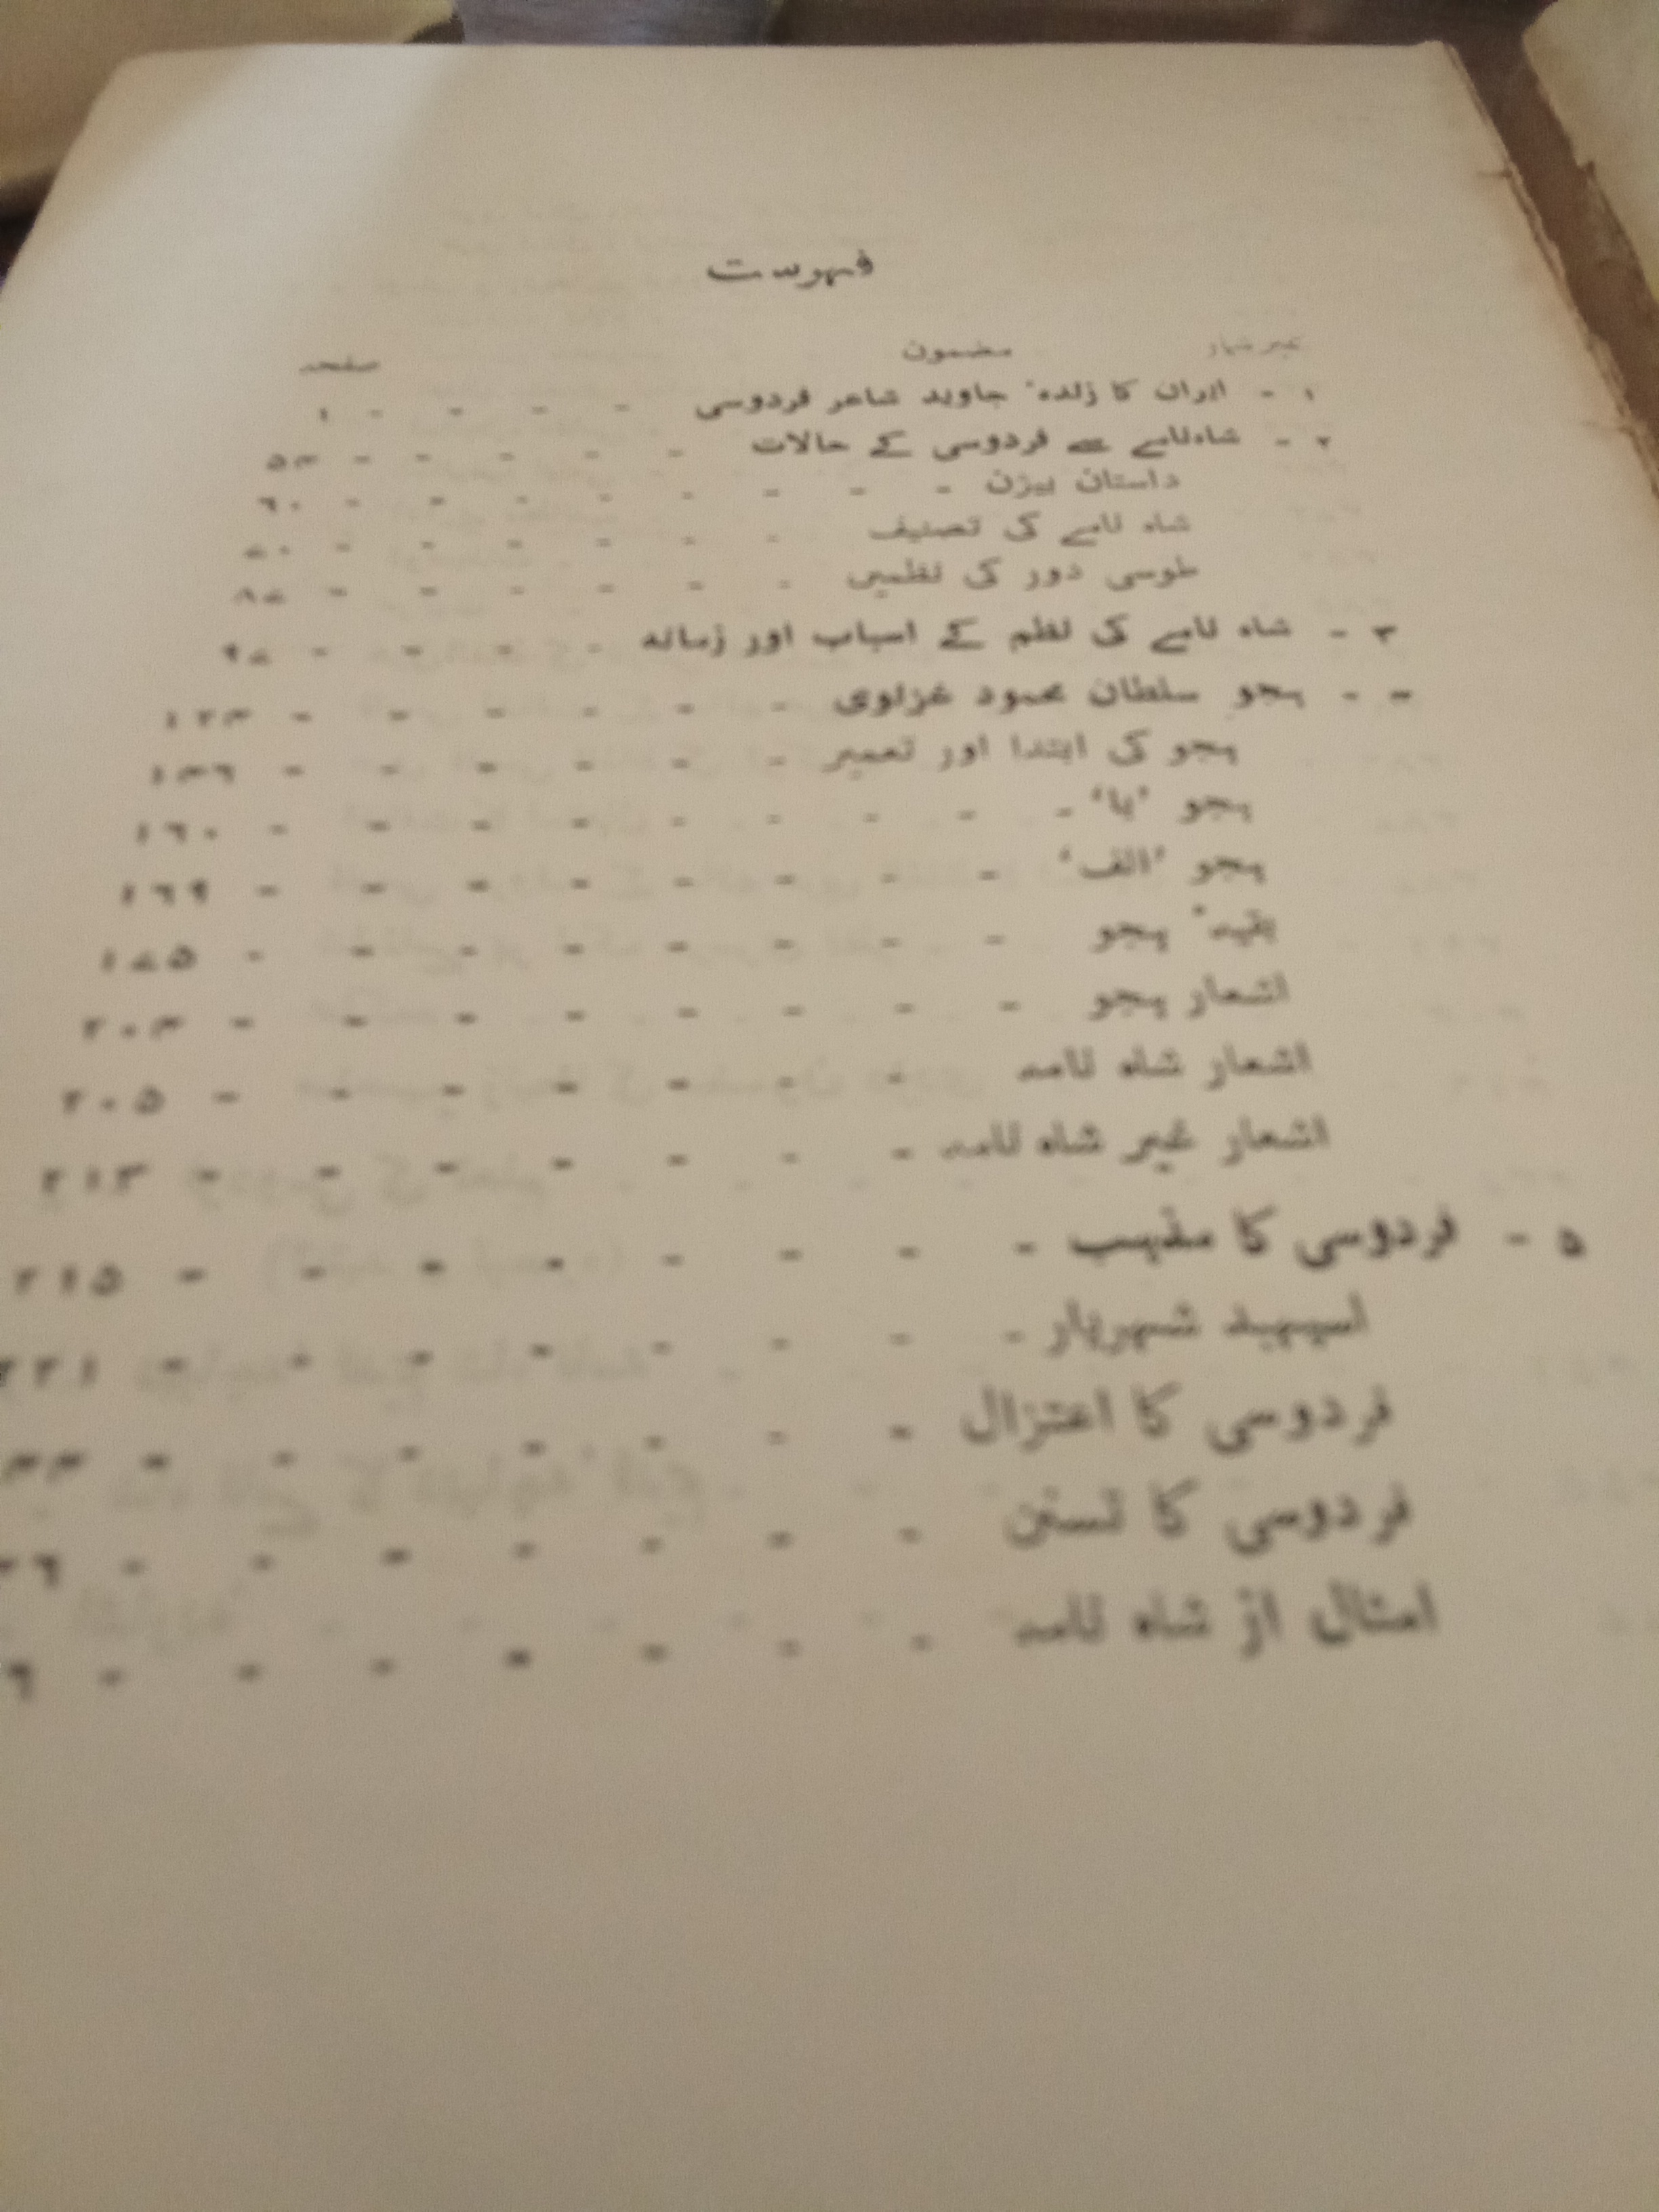 فہرست
نمبر شمار مضمون صفحہ
۱ - ایران کا زندہٴ جاوید شاعر فردوسی - - - - ۱
۲ - شاہنامے سے فردوسی کے حالات - - - - - ۵۳
داستان بیژن - - - - - - - - ۶۰
شاہ نامے کی تصنیف - - - - - - ۷۰
طوسی دور کی نظمیں - - - - - - ۸۷
۳ - شاہ نامے کی نظم کے اسباب اور زمانہ - - - - ۹۷
- - ہجو سلطان محمود غزنوی - - - - - - ۱۲۳
ہجو کی ابتدا اور تعمیر - - - - - - ۱۳۶
ہجو ’با‘ - - - - - - - - - ۱۶۰
ہجو ’الف‘ - - - - - - - - ۱۶۹
بقیہٴ ہجو - - - - - - - - ۱۷۵
اشعار ہجو - - - - - - - - ۲۰۳
اشعار شاہ نامہ - - - - - - - ۲۰۵
اشعار غیر شاہ نامہ - - - - - - - ۲۱۳
۵ - فردوسی کا مذہب - - - - - - - - ۲۱۵
اسپہبد شہریار - - - - - - - - ۲۲۱
فردوسی کا اعتزال - - - - - - -
فردوسی کا تسنن - - - - - - -
امثال از شاہ نامہ - - - - - - -